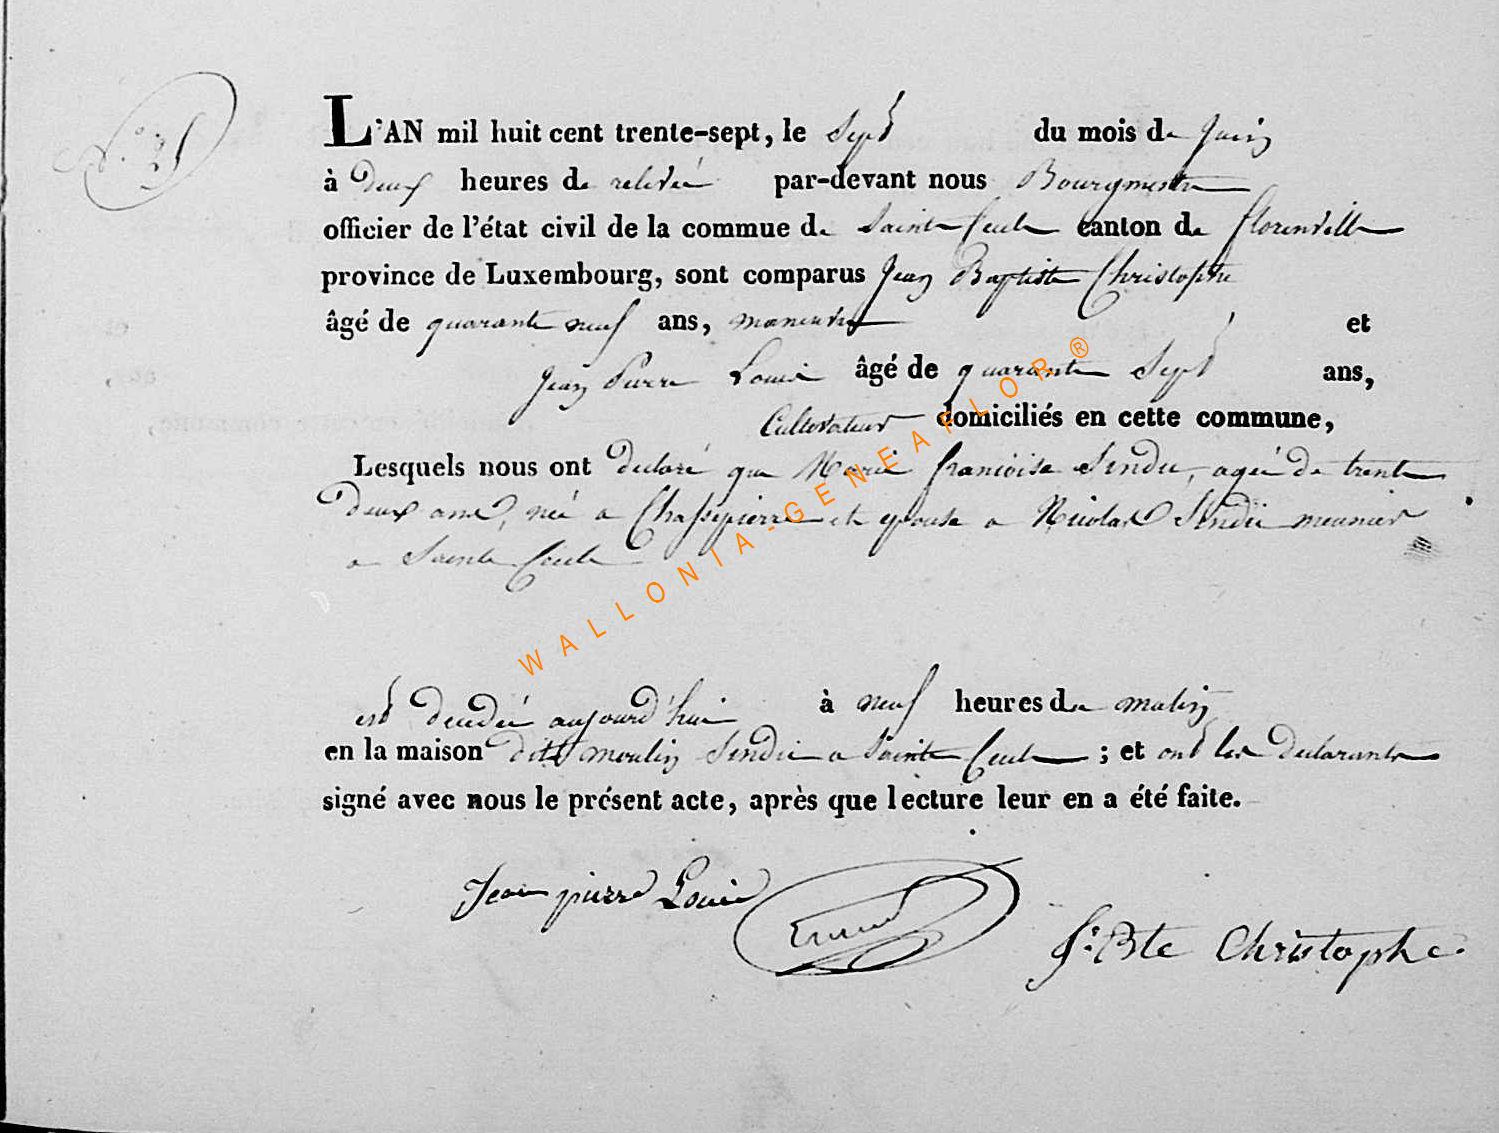 L'AN mil huit cent trente-sept, le Sept du mois de Juin
à deux heures de relevée par-devant nous Bourgmestre
officier de l'état civil de la commue de Sainte Cecile canton de florenville
province de Luxembourg, sont comparus Jean Baptiste Christophe
âgé de quarante neuf ans, maneuvre et
Jean Pierre Louis âgé de quarante Sept ans,
Cultivateur domiciliés en cette commune,
Lesquels nous ont declaré que Marie francoise Sindic, agée de trente
deux ans, née a Chassepierre et epouse a Nicolas Sindic meunier
a Sainte Cecile
est decedée aujourd'hui à neuf heures du matin
en la maison dite moulin Sindic a Sainte Cecile ; et ont les declarants
signé avec nous le présent acte, après que lecture leur en a été faite.
Jean pierre Louis
J. Bte Christophe.
WALLONIA-GENEAFLOR ®